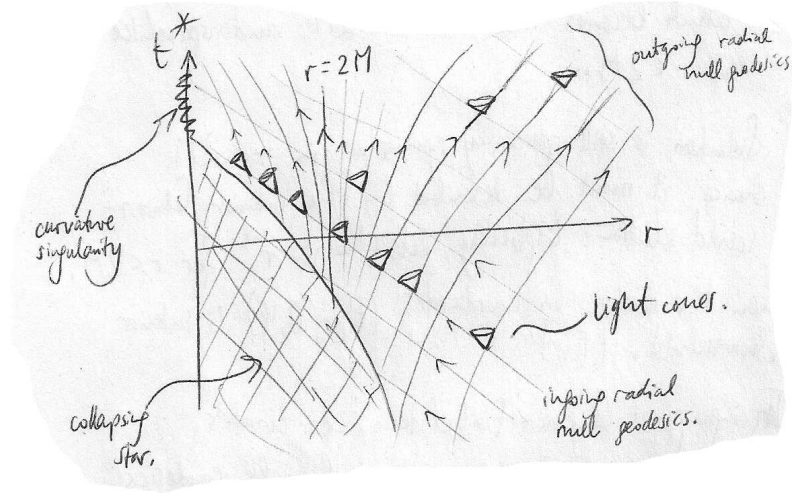 t*
r = 2M
outgoing radial
null geodesics
curvature
singularity
r
light cones.
ingoing radial
null geodesics.
collapsing
star.